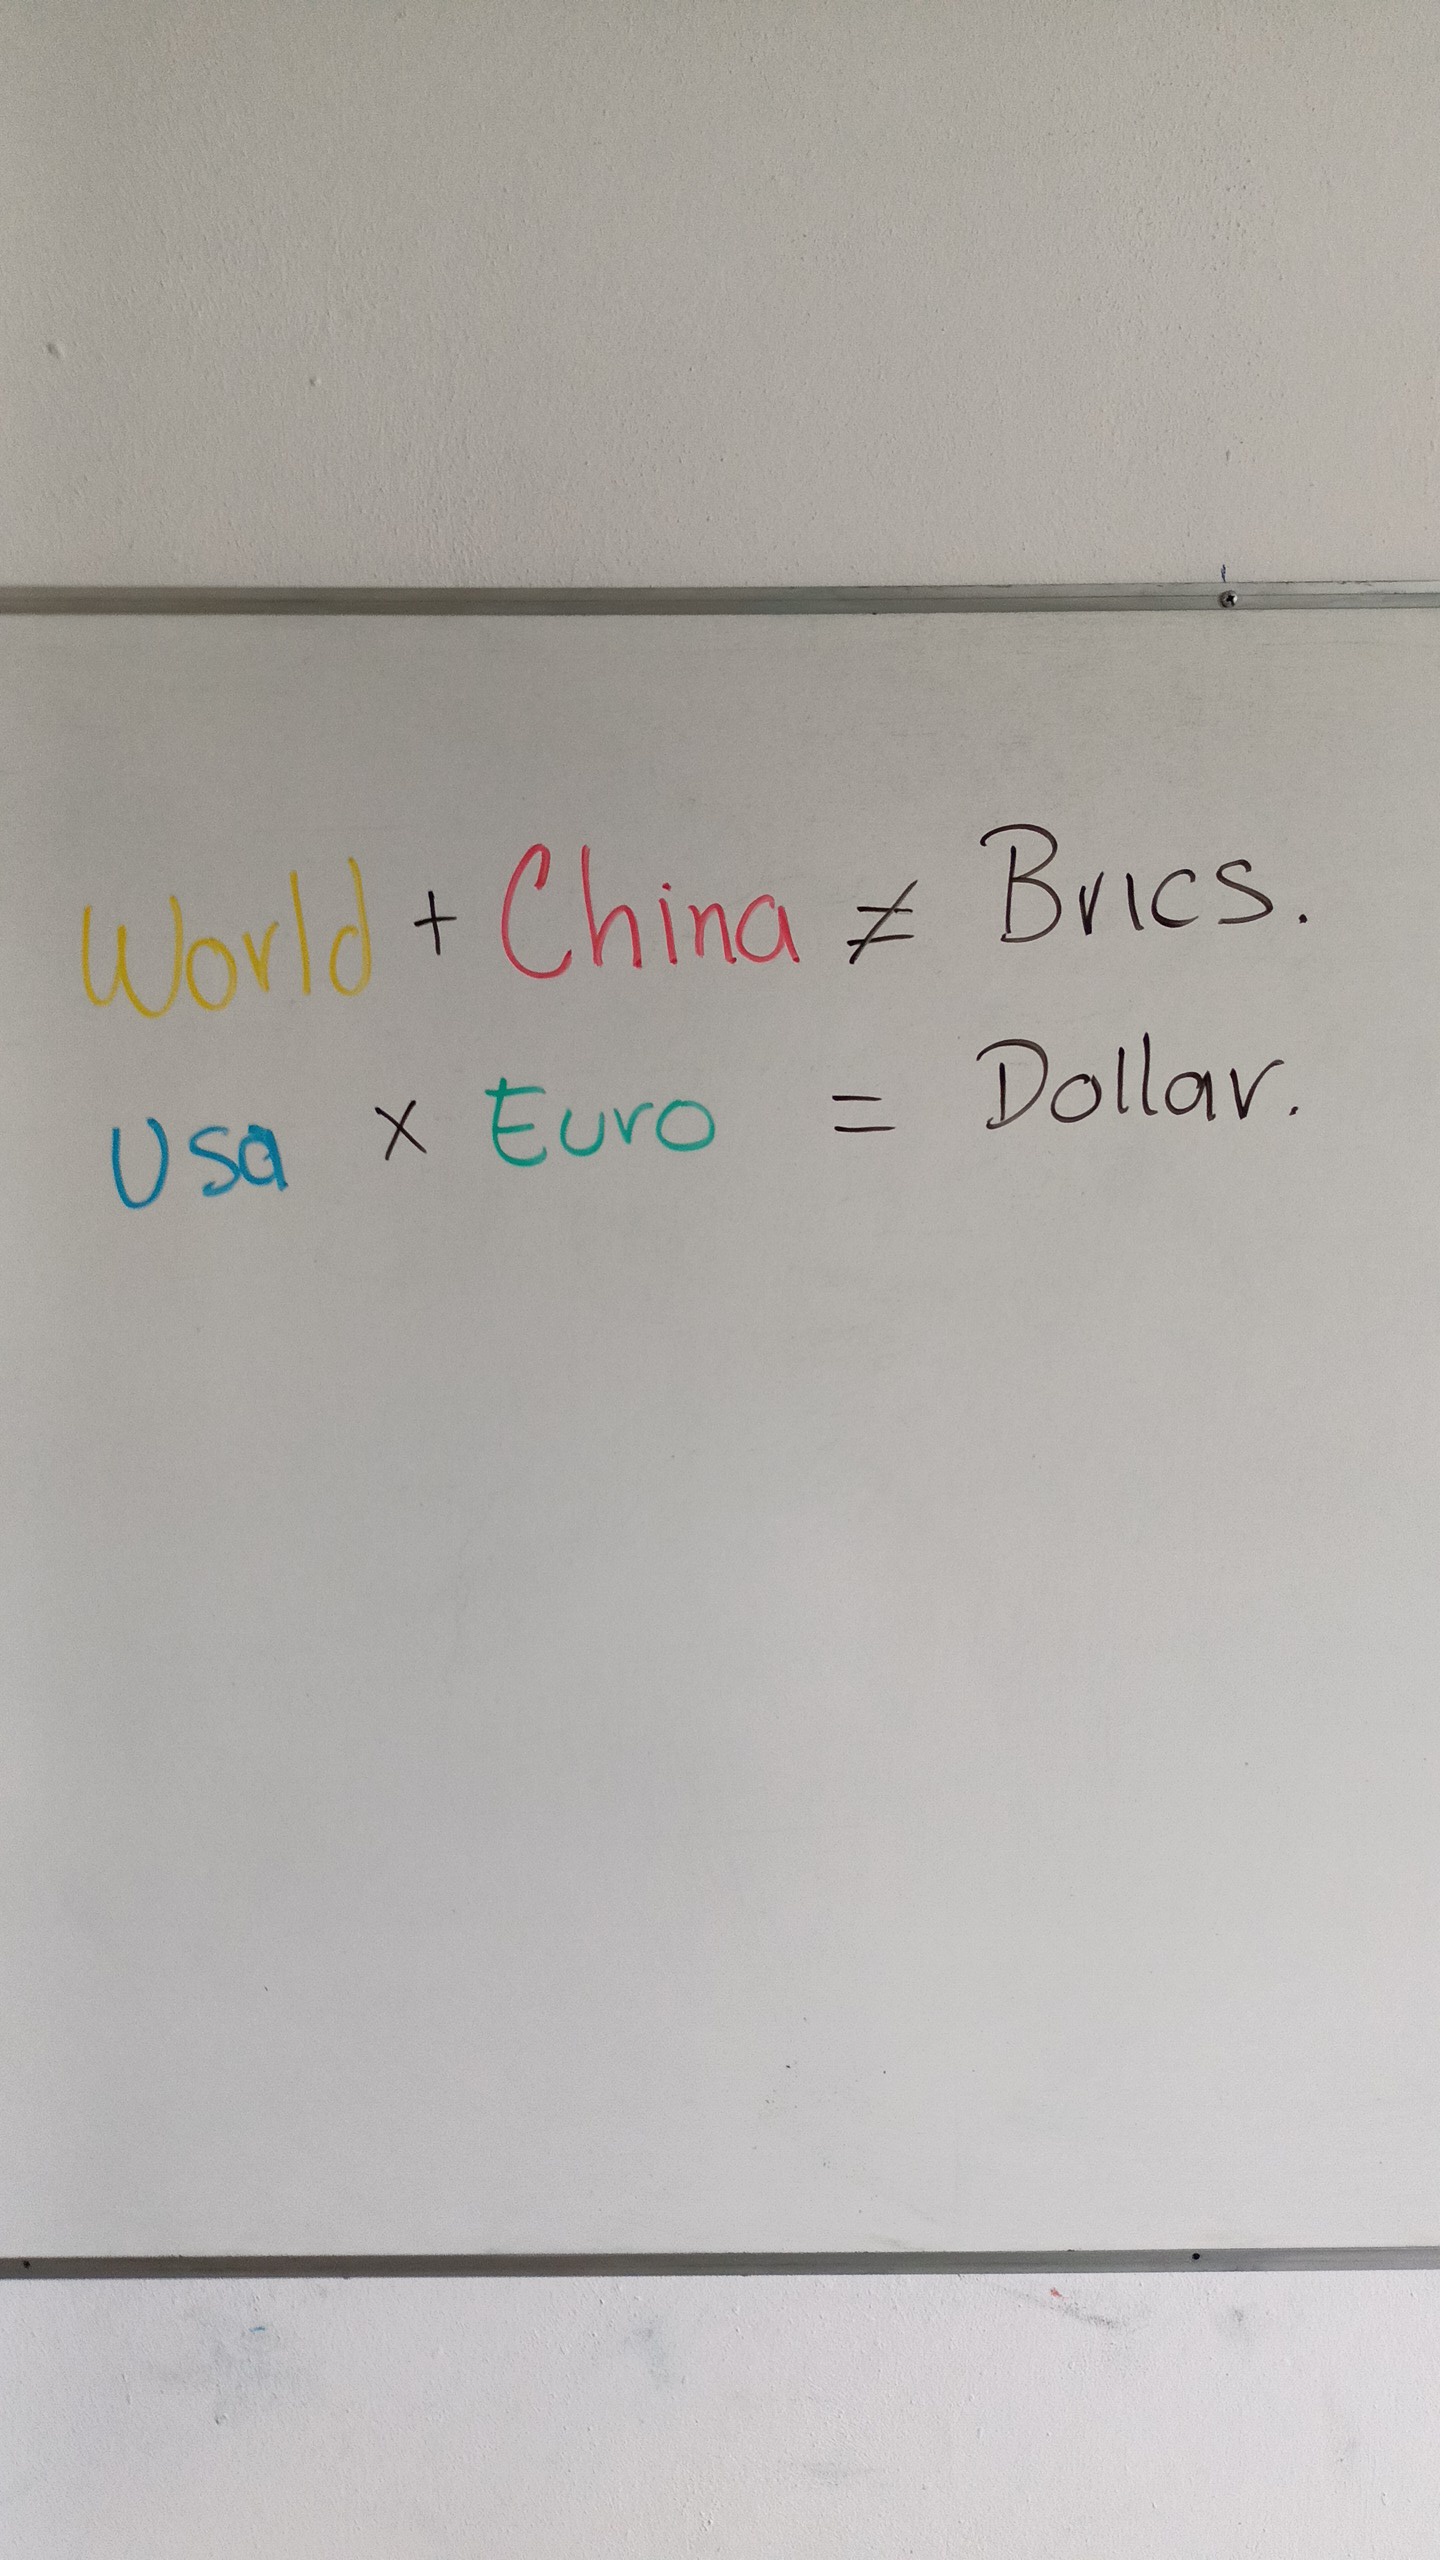 World + China ≠ Brics.
Usa x Euro = Dollar.